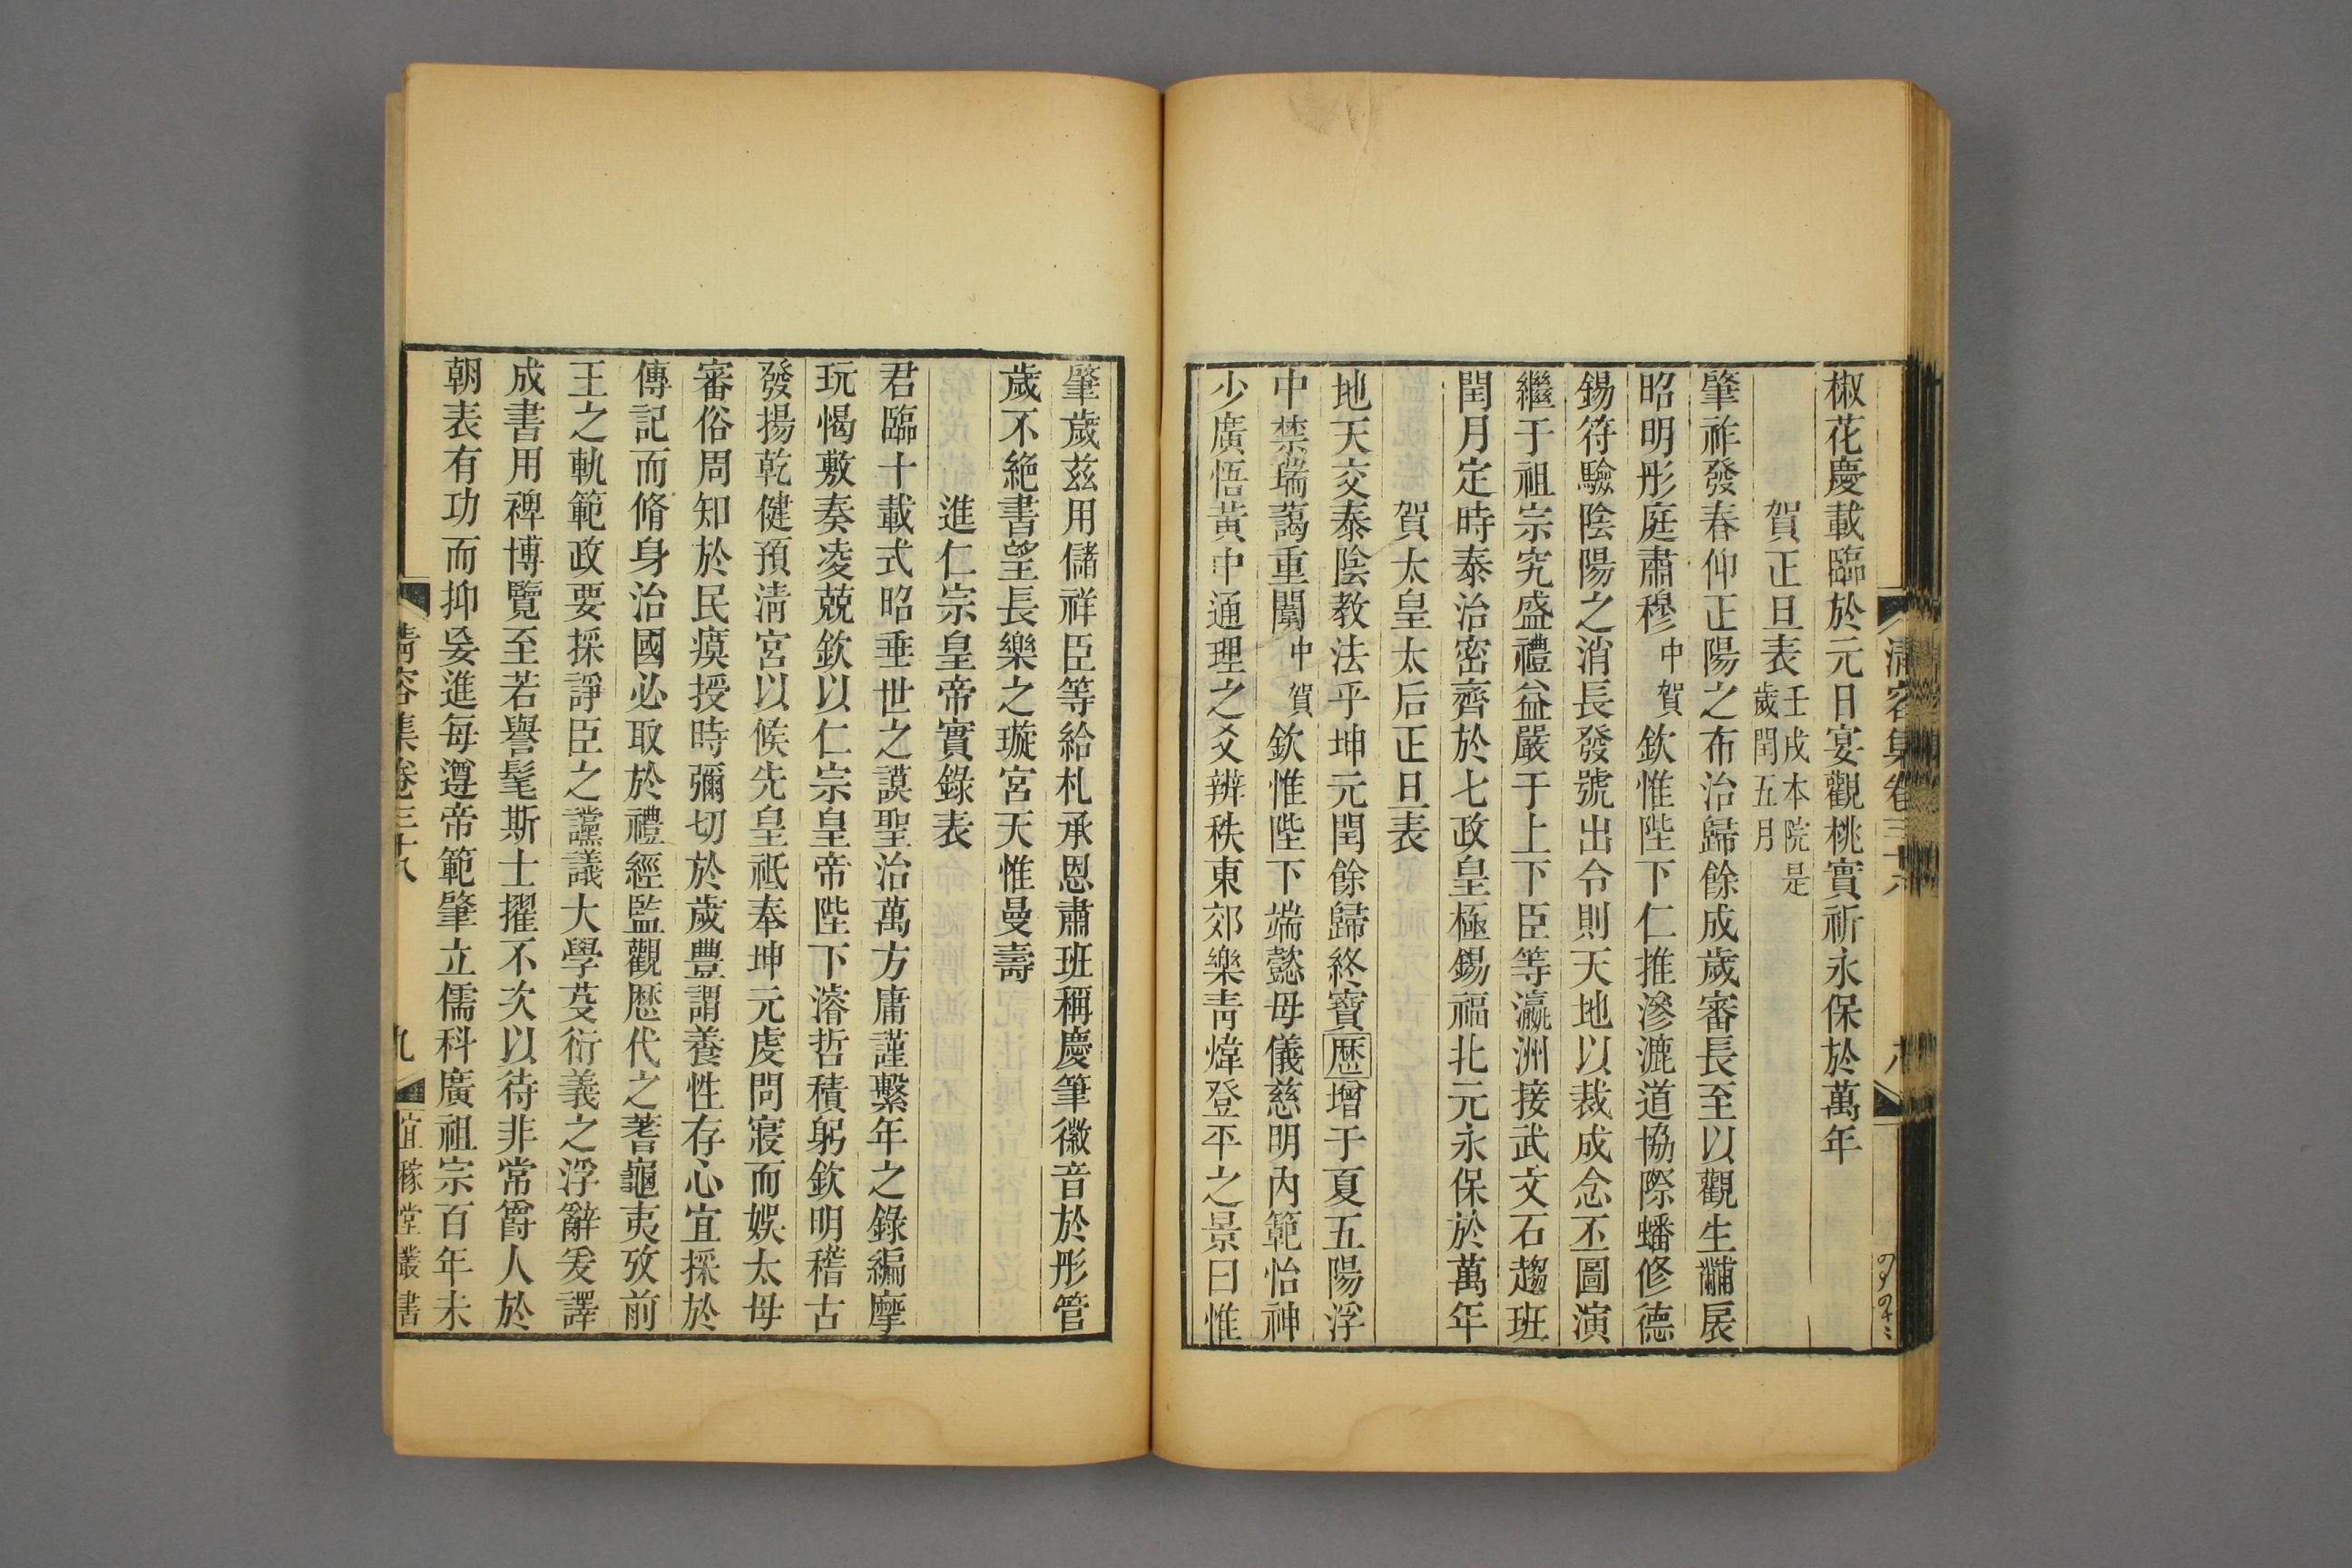 椒花慶載臨於元日宴觀桃實祈永保於萬年
賀正旦表壬戌本院是歲閏五月
肇祚發春仰正陽之布治歸餘成歲審長至以觀生黼扆
昭明彤庭肅穆中賀欽惟陛下仁推滲漉道協際蟠修德
錫符驗陰陽之消長發號出令則天地以裁成念丕圖演
繼于祖宗究盛禮益嚴于上下臣等瀛洲接武文石趨班
閏月定時泰治密齊於七政皇極錫福北元永保於萬年
賀太皇太后正旦表
地天交泰陰教法乎坤元閏餘歸終寶歷增于夏五陽浮
中禁瑞藹重闈中賀欽惟陛下端懿母儀慈明內範怡神
少廣悟黃中通理之爻辨秩東郊樂靑煒登平之景曰惟
肇歲茲用儲祥臣等給札承恩肅班稱慶筆徽音於彤管
歲不絶書望長樂之璇宮天惟曼壽
進仁宗皇帝實錄表
君臨十載式昭垂世之謨聖治萬方庸謹繫年之錄編摩
玩愒敷奏凌兢欽以仁宗皇帝陛下濬哲積躬欽明稽古
發揚乾健預淸宮以候先皇祗奉坤元虔問寢而娛太母
審俗周知於民瘼授時彌切於歲豐謂養性存心宜採於
傳記而脩身治國必取於禮經監觀歴代之蓍龜夷攷前
王之軌範政要採諍臣之讜議大學芟衍義之浮辭爰譯
成書用裨博覽至若譽髦斯士擢不次以待非常爵人於
朝表有功而抑妄進每遵帝範肇立儒科廣祖宗百年未
清容集卷三十八
九
宜稼堂叢書